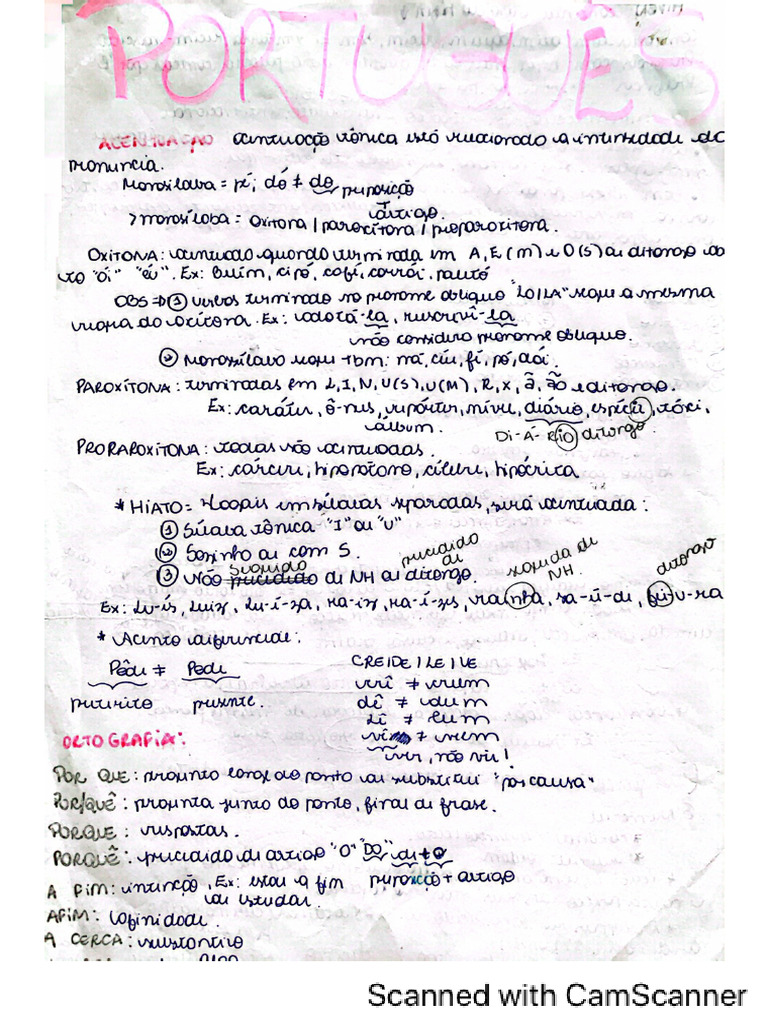 PORTUGUÊS
ACENTUAÇÃO acentuação tônica está relacionado a intensidade da
pronuncia.
Monosilaba = pé; dó ≠ do preposição
+
artigo.
> monosilaba = Oxitona / paroxitona / proparoxitona.
OXÍTONA: acentuado quando terminada em A, E (m) e O(S) ou ditongo
"ói" "éu". Ex: , cipó, café,
OBS → ① verbos terminado no pronome obliquo "LO/LA" segue a mesma
regra do oxitona. Ex: adotá-la, escrevê-la
não considera pronome obliquo.
② Monossilabo segue tbm: má, céu, fé, pó, dói.
PAROXÍTONA: terminadas em L, I, N, U(S), U(M), R, X, ã, ão e ditongo.
Ex: caráter, ônus, repórter, nível, diário, espécie, tóxi,
álbum.
DI-Á-RIO ditongo.
PROPAROXITONA: todas são acentuadas.
Ex: cárcere, hipopótamo, célebre, hipócrita
* HIATO = 2 vogais em silabas separadas, será acentuada:
① Silaba tônica "I" ou "U"
② Sozinho ou com S.
③ Não seguido de NH ou ditongo.
precidido
de
seguida de
NH.
ditongo
Ex: Lu-ís, Luiz, Lu-í-za, ra-iz, ra-í-zes, rainha, sa-ú-de, fei-u-ra
* Acento diferencial:
Pôde ≠ Pode
preterito presente.
CRE/DE/LE/VE
crê ≠ creem
dê ≠ deem
lê ≠ leem
vê ≠ veem
ver, não vir!
ORTOGRAFIA:
POR QUE: pergunta longe do ponto ou substitui "por causa"
POR/QUÊ: pergunta junto do ponto, final de frase.
PORQUE: respostas.
PORQUÊ: precidido de artigo "O" "DO" de+o
preposição + artigo
A FIM: intenção, Ex: estou a fim
de estudar.
AFIM: afinidade.
A CERCA: substantivo
Scanned with CamScanner